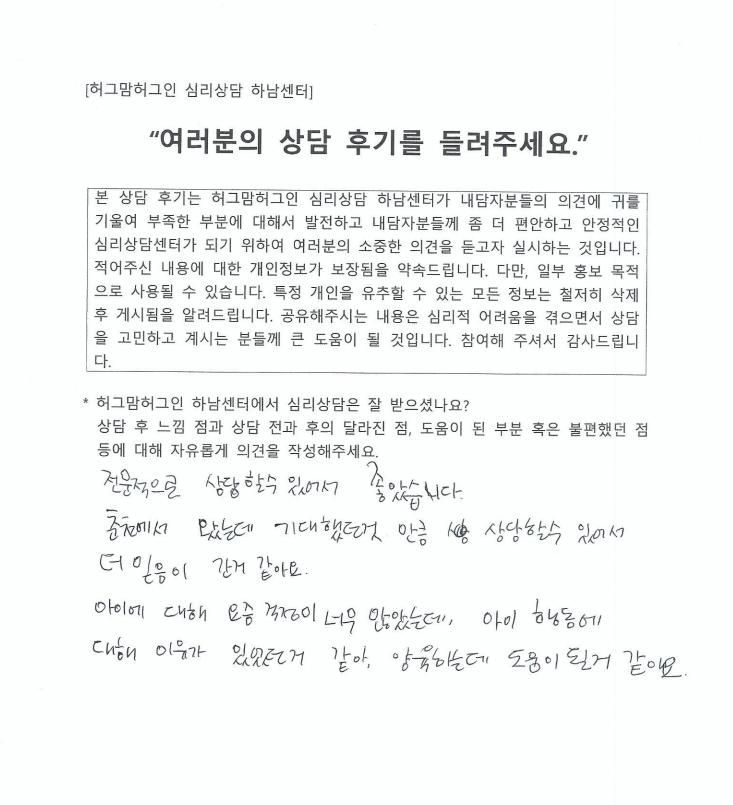 [허그맘허그인 심리상담 하남센터]
“여러분의 상담 후기를 들려주세요.”
본 상담 후기는 허그맘허그인 심리상담 하남센터가 내담자분들의 의견에 귀를
기울여 부족한 부분에 대해서 발전하고 내담자분들께 좀 더 편안하고 안정적인
심리상담센터가 되기 위하여 여러분의 소중한 의견을 듣고자 실시하는 것입니다.
적어주신 내용에 대한 개인정보가 보장됨을 약속드립니다. 다만, 일부 홍보 목적
으로 사용될 수 있습니다. 특정 개인을 유추할 수 있는 모든 정보는 철저히 삭제
후 게시됨을 알려드립니다. 공유해주시는 내용은 심리적 어려움을 겪으면서 상담
을 고민하고 계시는 분들께 큰 도움이 될 것입니다. 참여해 주셔서 감사드립니
다.
* 허그맘허그인 하남센터에서 심리상담은 잘 받으셨나요?
상담 후 느낌 점과 상담 전과 후의 달라진 점, 도움이 된 부분 혹은 불편했던 점
등에 대해 자유롭게 의견을 작성해주세요.
전문적으로 상담할수 있어서 좋았습니다.
춘천에서 왔는데 기대했던것 만큼 상담할수 있어서
더 믿음이 간거 같아요.
아이에 대해 요즘 걱정이 너무 많았는데, 아이 행동에
대해 이유가 있었던거 같아, 양육하는데 도움이 될거 같아요.